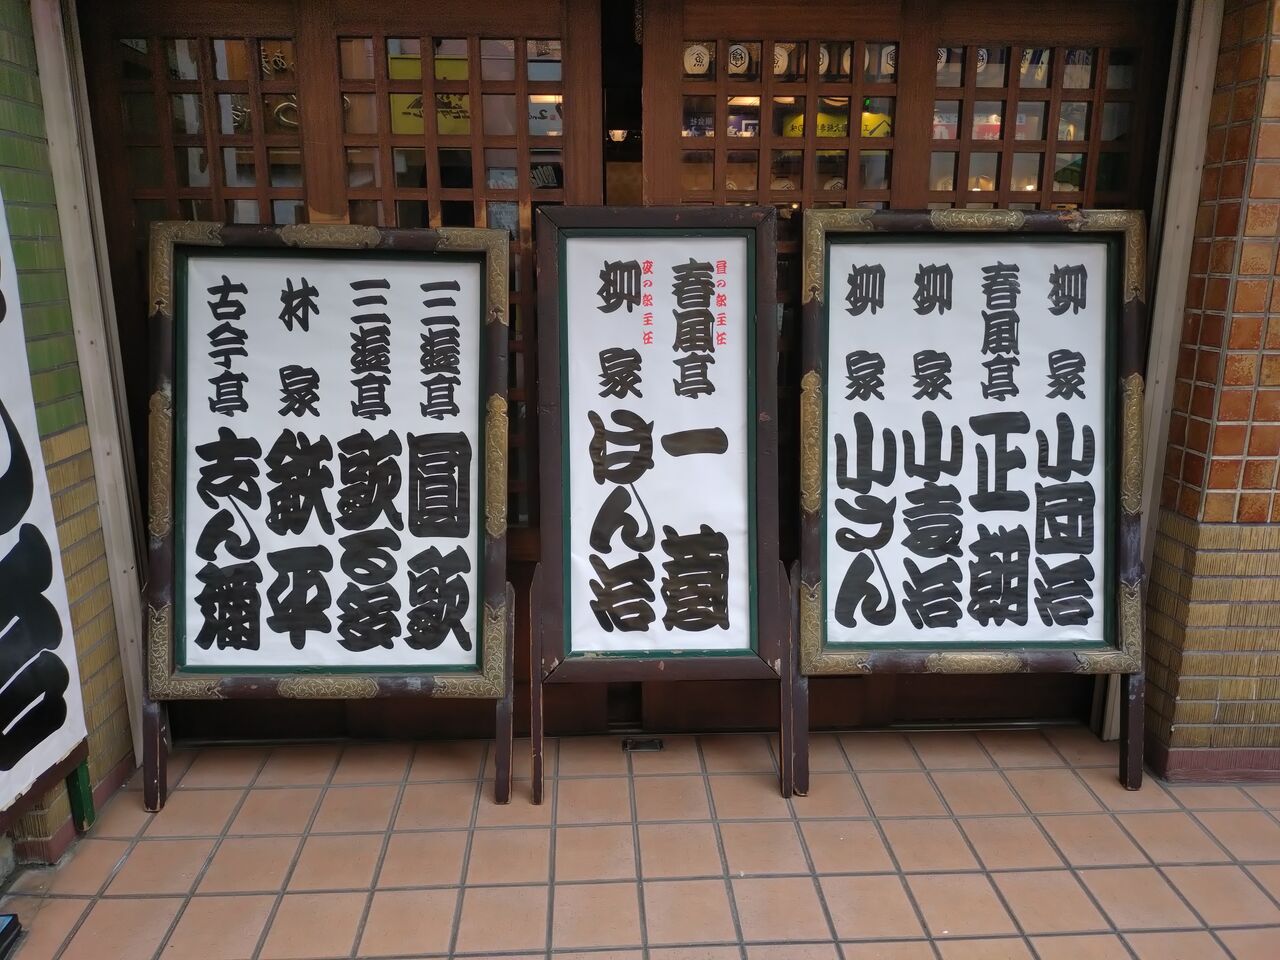 柳家小団治
春風亭正朝
柳家小袁治
柳家小さん
昼の部主任
春風亭一蔵
夜の部主任
柳家はん治
三遊亭圓歌
三遊亭歌る多
林家鉄平
古今亭志ん彌